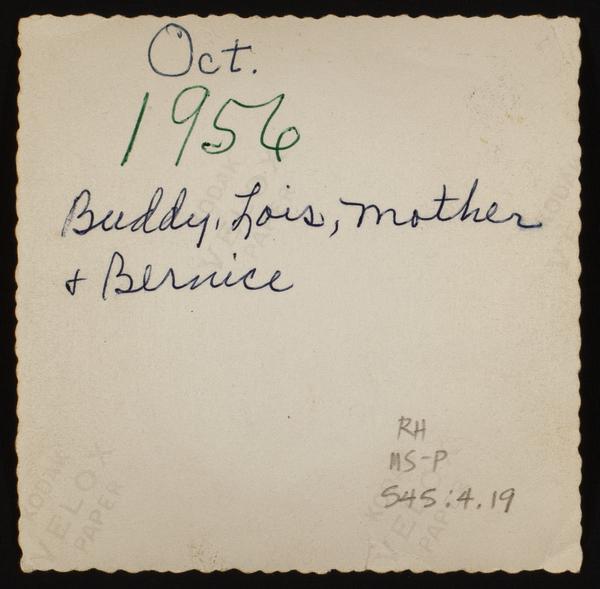 Oct.
1956
Buddy, Lois, Mother
& Bernice
RH
MS-P
545:4.19
KODAK
VELOX
PAPER
KODAK
VELOX
PAPER
KODAK
VELOX
PAPER
KODAK